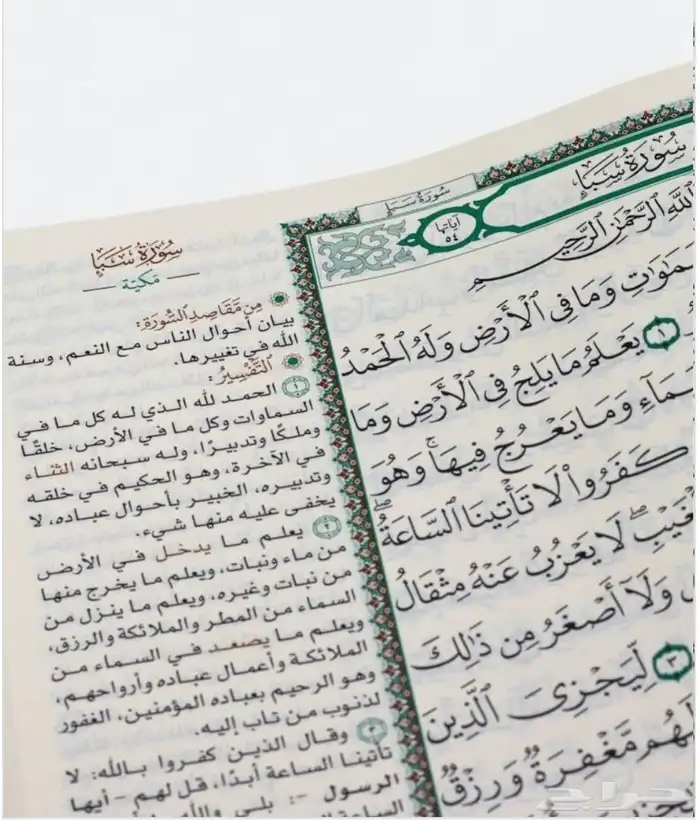 سُورَةُ سَبَإٍ
سُورَةُ سَبَإٍ
آياتها
٥٤
ٱللَّهِ ٱلرَّحْمَٰنِ ٱلرَّحِيمِ
وَمَا فِي ٱلْأَرْضِ وَلَهُ ٱلْحَمْدُ
١ يَعْلَمُ مَا يَلِجُ فِي ٱلْأَرْضِ وَمَا
وَمَا يَعْرُجُ فِيهَا ۚ وَهُوَ
كَفَرُوا۟ لَا تَأْتِينَا ٱلسَّاعَةُ ۖ
لَا يَعْزُبُ عَنْهُ مِثْقَالُ
وَلَآ أَصْغَرُ مِن ذَٰلِكَ
٣ لِّيَجْزِيَ ٱلَّذِينَ
لَهُم مَّغْفِرَةٌ وَرِزْقٌ
سُورَةُ سَبَإٍ
مَكيّة
مِن مَّقَاصِدِ السُّورَةِ:
بيان أحوال الناس مع النعم، وسنة
الله في تغييرها.
التَّفْسِيرُ:
١ الحمد لله الذي له كل ما في
السماوات وكل ما في الأرض، خلقًا
وملكًا وتدبيرًا، وله سبحانه الثناء
في الآخرة، وهو الحكيم في خلقه
وتدبيره، الخبير بأحوال عباده، لا
يخفى عليه منها شيء.
٢ يعلم ما يدخل في الأرض
من ماء ونبات، ويعلم ما يخرج منها
من نبات وغيره، ويعلم ما ينزل من
السماء من المطر والملائكة والرزق،
ويعلم ما يصعد في السماء من
الملائكة وأعمال عباده وأرواحهم،
وهو الرحيم بعباده المؤمنين، الغفور
لذنوب من تاب إليه.
٣ وقال الذين كفروا بالله: لا
تأتينا الساعة أبدًا، قل لهم - أيها
الرسول -: بلى والله
حراج